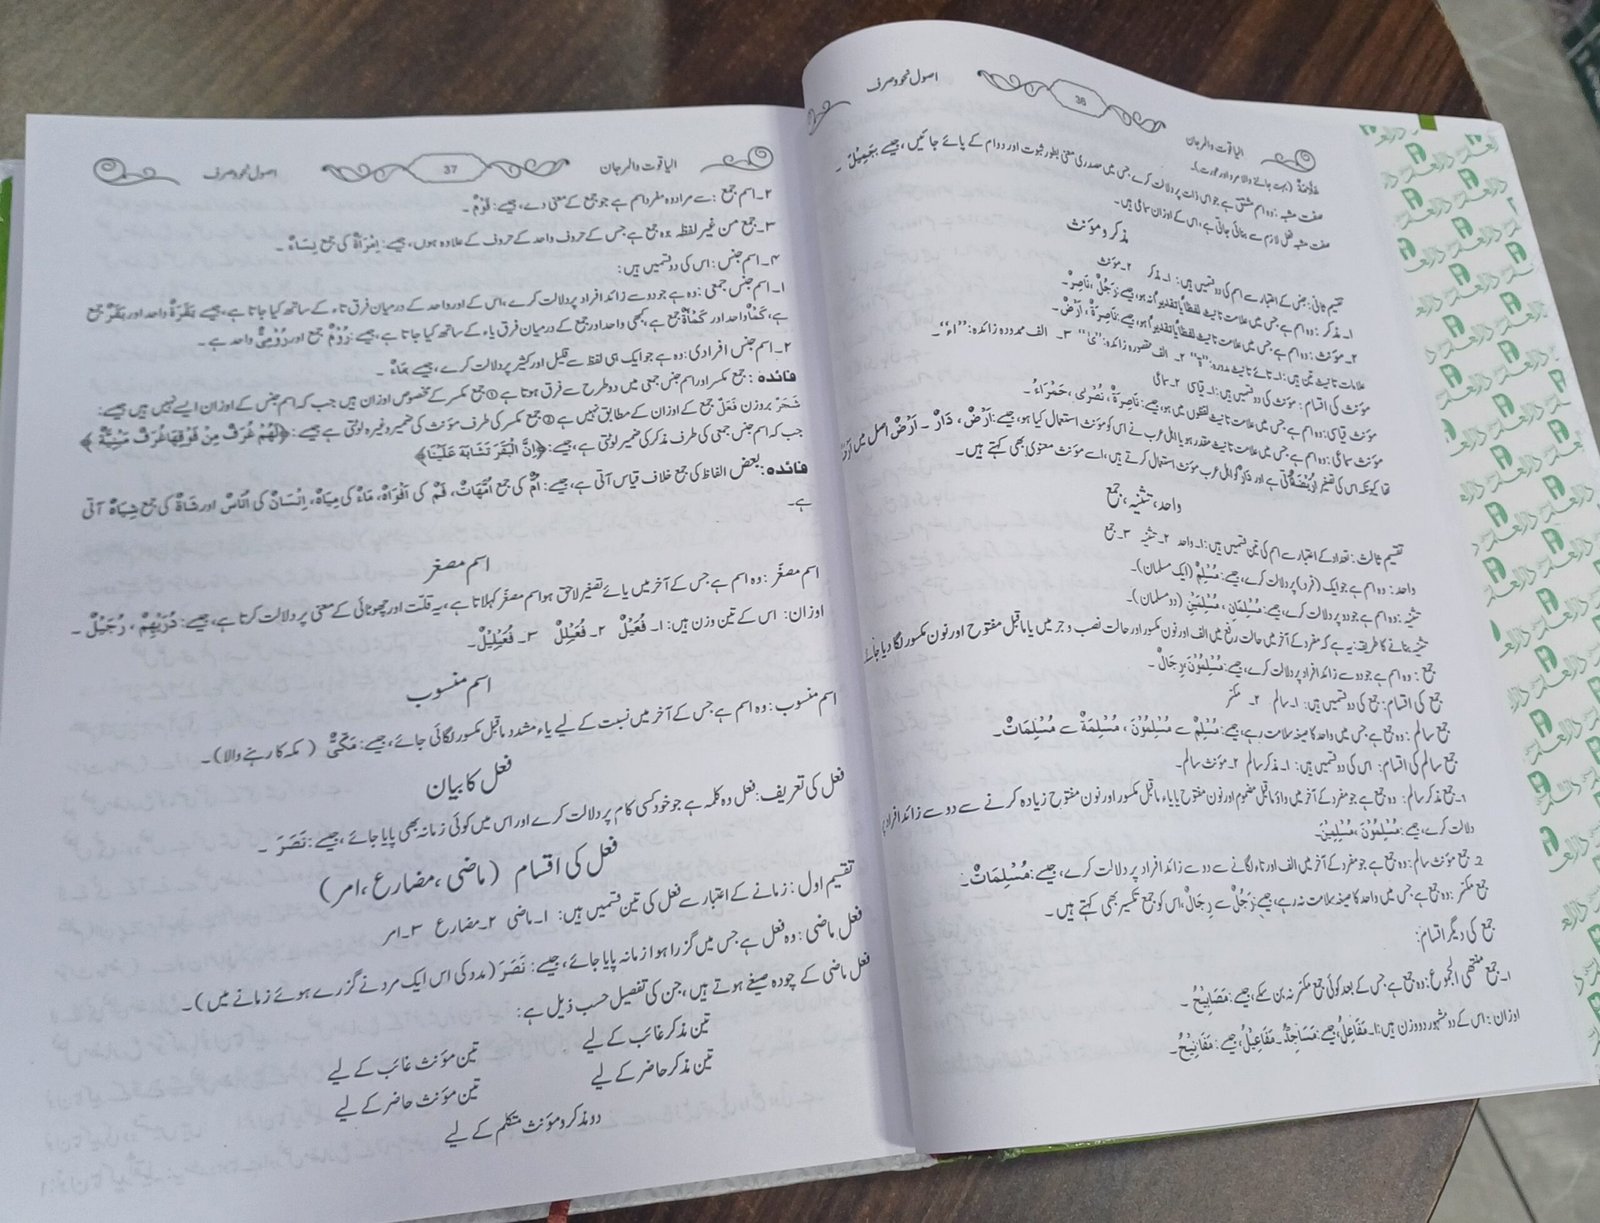 الیاقوت والمرجان 36 اصول نحو وصرف
عَلَّامَۃٌ (بہت جاننے والا مرد اور عورت)۔
صفت مشبہ : وہ اسم مشتق ہے جو اس ذات پر دلالت کرے جس میں مصدری معنی بطور ثبوت اور دوام کے پائے جائیں، جیسے: جَمِیْلٌ ۔
صفت مشبہ فعل لازم سے بنائی جاتی ہے، اس کے اوزان سماعی ہیں۔
مذکر ومؤنث
تقسیم ثانی: جنس کے اعتبار سے اسم کی دو قسمیں ہیں: ۱۔ مذکر ۲۔ مؤنث
۱۔ مذکر : وہ اسم ہے جس میں علامت تانیث لفظاً یا تقدیراً نہ ہو، جیسے: رَجُلٌ، نَاصِرٌ۔
۲۔ مؤنث : وہ اسم ہے جس میں علامت تانیث لفظاً یا تقدیراً ہو، جیسے: نَاصِرَۃٌ، اَرْضٌ۔
علامات تانیث تین ہیں: ۱۔ تائے تانیث مدورہ: ’’ۃ‘‘ ۲۔ الف مقصورہ زائدہ: ’’یٰ‘‘ ۳۔ الف ممدودہ زائدہ: ’’اء‘‘۔
مؤنث کی اقسام : مؤنث کی دو قسمیں ہیں: ۱۔ قیاسی ۲۔ سماعی
مؤنث قیاسی: وہ اسم ہے جس میں علامت تانیث لفظوں میں ہو، جیسے: نَاصِرَۃٌ، نُصْرٰی، حَمْرَاءُ۔
مؤنث سماعی: وہ اسم ہے جس میں علامت تانیث مقدر ہو یا اہل عرب نے اس کو مؤنث استعمال کیا ہو، جیسے: اَرْضٌ، دَارٌ ۔ اَرْضٌ اصل میں
تھا کیونکہ اس کی تصغیر اُرَیْضَۃٌ آتی ہے اور دَارٌ کو اہل عرب مؤنث استعمال کرتے ہیں، اسے مؤنث معنوی بھی کہتے ہیں۔
واحد، تثنیہ، جمع
تقسیم ثالث : تعداد کے اعتبار سے اسم کی تین قسمیں ہیں: ۱۔ واحد ۲۔ تثنیہ ۳۔ جمع
واحد : وہ اسم ہے جو ایک (فرد) پر دلالت کرے، جیسے: مُسْلِمٌ (ایک مسلمان)۔
تثنیہ : وہ اسم ہے جو دو پر دلالت کرے، جیسے: مُسْلِمَانِ، مُسْلِمَیْنِ (دو مسلمان)۔
تثنیہ بنانے کا طریقہ: یہ ہے کہ مفرد کے آخر میں حالت رفع میں الف اور نون مکسور اور حالت نصب وجر میں یا ماقبل مفتوح اور نون مکسور لگا دیا جائے
جمع : وہ اسم ہے جو دو سے زائد افراد پر دلالت کرے، جیسے: مُسْلِمُوْنَ، رِجَالٌ ۔
جمع کی اقسام: جمع کی دو قسمیں ہیں: ۱۔ سالم ۲۔ مکسر
جمع سالم : وہ جمع ہے جس میں واحد کا صیغہ سلامت رہے، جیسے: مُسْلِمٌ سے مُسْلِمُوْنَ، مُسْلِمَۃٌ سے مُسْلِمَاتٌ۔
جمع سالم کی اقسام: اس کی دو قسمیں ہیں: ۱۔ مذکر سالم ۲۔ مؤنث سالم۔
۱۔ جمع مذکر سالم: وہ جمع ہے جو مفرد کے آخر میں واؤ ماقبل مضموم اور نون مفتوح یا یاء ماقبل مکسور اور نون مفتوح زیادہ کرنے سے دو سے زائد افراد
دلالت کرے، جیسے: مُسْلِمُوْنَ، مُسْلِمِیْنَ۔
۲۔ جمع مؤنث سالم: وہ جمع ہے جو مفرد کے آخر میں الف اور تاء لگانے سے دو سے زائد افراد پر دلالت کرے، جیسے: مُسْلِمَاتٌ۔
جمع مکسر : وہ جمع ہے جس میں واحد کا صیغہ سلامت نہ رہے، جیسے: رَجُلٌ سے رِجَالٌ، اس کو جمع تکسیر بھی کہتے ہیں۔
جمع کی دیگر اقسام:
۱۔ جمع منتھی الجموع: وہ جمع ہے جس کے بعد کوئی جمع مکسر نہ بن سکے، جیسے: مَصَابِیْحُ ۔
اوزان : اس کے دو مشہور دو وزن ہیں: ۱۔ مَفَاعِلُ، جیسے: مَسَاجِدُ۔ مَفَاعِیْلُ، جیسے: مَفَاتِیْحُ۔
الیاقوت والمرجان 37 اصول نحو وصرف
۲۔ اسم جمع : سے مراد وہ مفرد اسم ہے جو جمع کے معنی دے، جیسے: قَوْمٌ ۔
۳۔ جمع من غیر لفظہ: وہ جمع ہے جس کے حروف واحد کے حروف کے علاوہ ہوں، جیسے: اِمْرَاَۃٌ کی جمع نِسَاءٌ ۔
۴۔ اسم جنس : اس کی دو قسمیں ہیں:
۱۔ اسم جنس جمعی : وہ ہے جو دو سے زائد افراد پر دلالت کرے، اس کے اور واحد کے درمیان فرق تاء کے ساتھ کیا جاتا ہے، جیسے بَقَرَۃٌ واحد اور بَقَرٌ جمع
ہے، کَمْأٌ واحد اور کَمْأَۃٌ جمع ہے، کبھی واحد اور جمع کے درمیان فرق یاء کے ساتھ کیا جاتا ہے، جیسے: رُوْمٌ جمع اور رُوْمِیٌّ واحد ہے۔
۲۔ اسم جنس افرادی: وہ ہے جو ایک ہی لفظ سے قلیل اور کثیر پر دلالت کرے، جیسے مَاءٌ ۔
فائدہ : جمع مکسر اور اسم جنس جمعی میں دو طرح سے فرق ہوتا ہے ① جمع مکسر کے مخصوص اوزان ہیں جب کہ اسم جنس کے اوزان ایسے نہیں ہیں جیسے:
شَجَرٌ بروزن فَعَلٌ جمع کے اوزان کے مطابق نہیں ہے ② جمع مکسر کی طرف مؤنث کی ضمیر وغیرہ لوٹتی ہے جیسے: ﴿لَهُمْ غُرَفٌ مِّنْ فَوْقِهَا غُرَفٌ مَّبْنِيَّةٌ﴾
جب کہ اسم جنس جمعی کی طرف مذکر کی ضمیر لوٹتی ہے، جیسے: ﴿اِنَّ الْبَقَرَ تَشٰبَهَ عَلَيْنَا﴾
فائدہ : بعض الفاظ کی جمع خلاف قیاس آتی ہے، جیسے: اُمٌّ کی جمع اُمَّهَاتٌ، فَمٌ کی اَفْوَاہٌ، مَاءٌ کی مِیَاہٌ، اِنْسَانٌ کی اُنَاسٌ اور شَاۃٌ کی جمع شِیَاہٌ آتی
ہے۔
اسم مصغر
اسم مصغّر : وہ اسم ہے جس کے آخر میں یائے تصغیر لاحق ہو اسم مصغّر کہلاتا ہے، یہ قلت اور چھوٹائی کے معنی پر دلالت کرتا ہے، جیسے: دُرَیْهِمٌ، رُجَیْلٌ ۔
اوزان: اس کے تین وزن ہیں: ۱۔ فُعَیْلٌ ۲۔ فُعَیْلِلٌ ۳۔ فُعَیْلِیْلٌ۔
اسم منسوب
اسم منسوب : وہ اسم ہے جس کے آخر میں نسبت کے لیے یاء مشدد ماقبل مکسور لگائی جائے، جیسے: مَکِّیٌّ ( مکہ کا رہنے والا)۔
فعل کا بیان
فعل کی تعریف: فعل وہ کلمہ ہے جو خود کسی کام پر دلالت کرے اور اس میں کوئی زمانہ بھی پایا جائے، جیسے: نَصَرَ ۔
فعل کی اقسام (ماضی، مضارع، امر)
تقسیم اول : زمانے کے اعتبار سے فعل کی تین قسمیں ہیں: ۱۔ ماضی ۲۔ مضارع ۳۔ امر
فعل ماضی : وہ فعل ہے جس میں گزرا ہوا زمانہ پایا جائے، جیسے: نَصَرَ (مدد کی اس ایک مرد نے گزرے ہوئے زمانے میں)۔
فعل ماضی کے چودہ صیغے ہوتے ہیں، جن کی تفصیل حسب ذیل ہے:
تین مذکر غائب کے لیے تین مؤنث غائب کے لیے
تین مذکر حاضر کے لیے تین مؤنث حاضر کے لیے
دو مذکر ومؤنث متکلم کے لیے